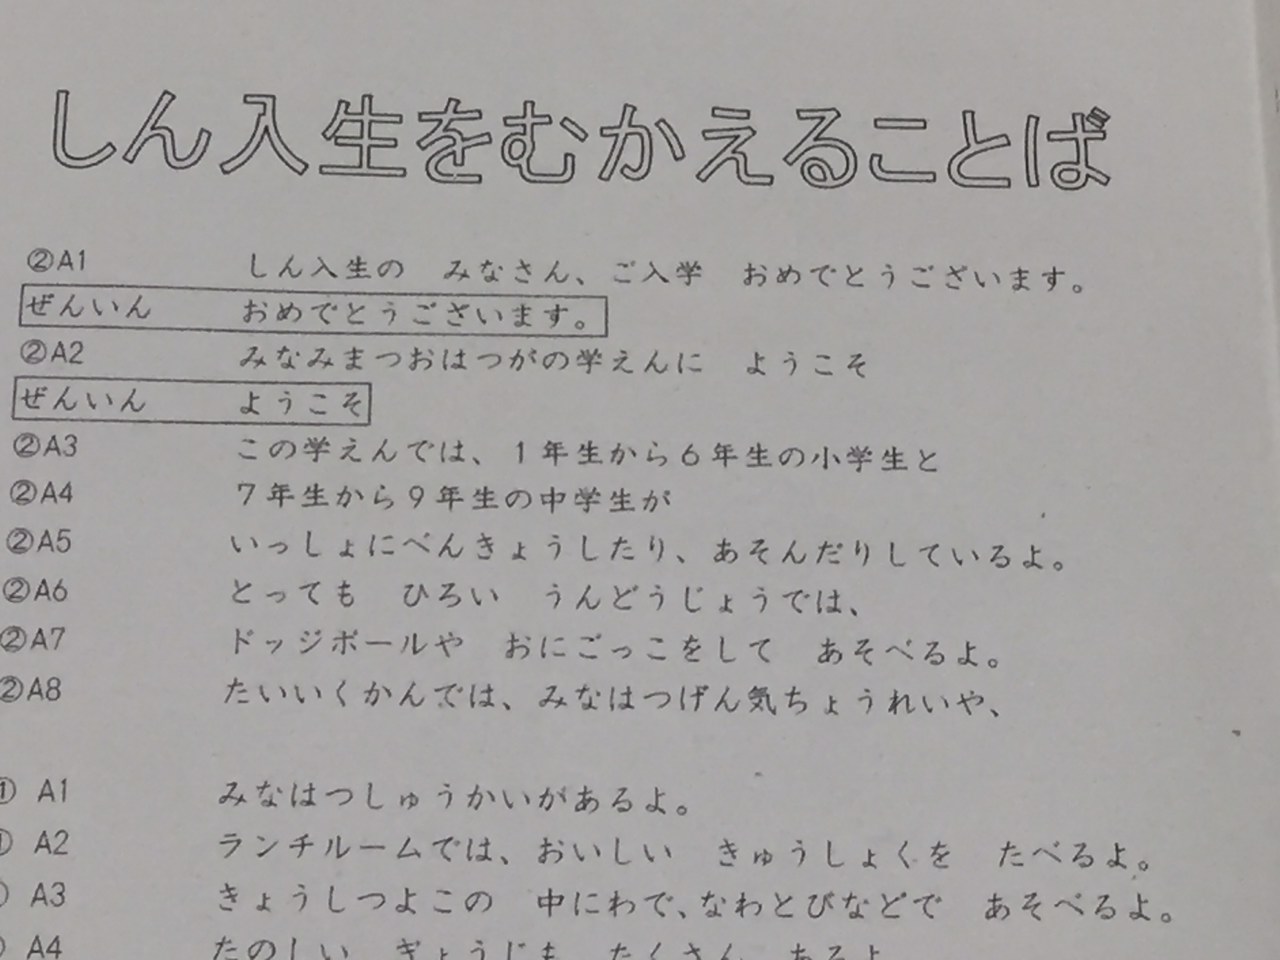 しん入生をむかえることば
②A1 しん入生の みなさん、ご入学 おめでとうございます。
ぜんいん おめでとうございます。
②A2 みなみまつおはつがの学えんに ようこそ
ぜんいん ようこそ
②A3 この学えんでは、1年生から6年生の小学生と
②A4 7年生から9年生の中学生が
②A5 いっしょにべんきょうしたり、あそんだりしているよ。
②A6 とっても ひろい うんどうじょうでは、
②A7 ドッジボールや おにごっこをして あそべるよ。
②A8 たいいくかんでは、みなはつげん気ちょうれいや、
① A1 みなはつしゅうかいがあるよ。
① A2 ランチルームでは、おいしい きゅうしょくを たべるよ。
A3 きょうしつよこの 中にわで、なわとびなどで あそべるよ。
A4 たのしい ぎょうじも たくさん あるよ